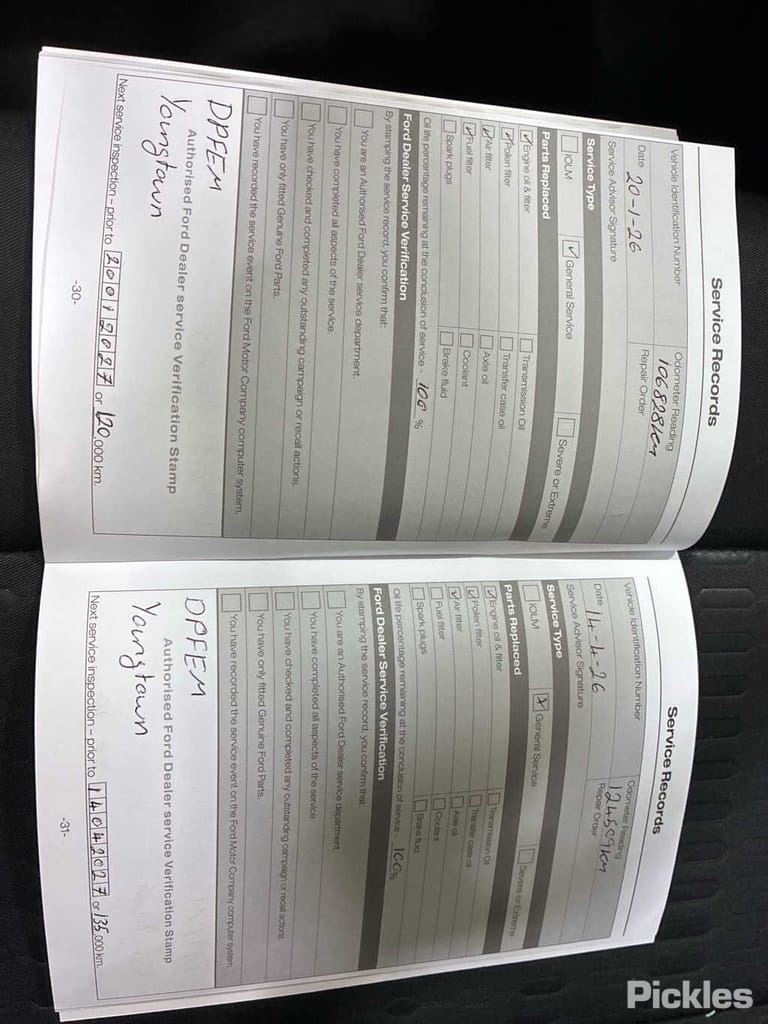 Service Records
Vehicle Identification Number
Odometer Reading
106828km
Date 20-1-26
Repair Order
Service Advisor Signature
Service Type
IOLM
General Service
Severe or Extreme
Parts Replaced
Engine oil & filter
Transmission Oil
Pollen filter
Transfer case oil
Air filter
Axle oil
Fuel filter
Coolant
Spark plugs
Brake fluid
Oil life percentage remaining at the conclusion of service - 100 %
Ford Dealer Service Verification
By stamping the service record, you confirm that:
You are an Authorised Ford Dealer service department.
You have completed all aspects of the service.
You have checked and completed any outstanding campaign or recall actions.
You have only fitted Genuine Ford Parts.
You have recorded the service event on the Ford Motor Company computer system.
DPFEM
Authorised Ford Dealer service Verification Stamp
Youngtown
Next service inspection – prior to 20012027 or 120,000 km.
-30-
Service Records
Vehicle Identification Number
Odometer Reading
124509km
Date 14-4-26
Repair Order
Service Advisor Signature
Service Type
IOLM
General Service
Severe or Extreme
Parts Replaced
Engine oil & filter
Transmission Oil
Pollen filter
Transfer case oil
Air filter
Axle oil
Fuel filter
Coolant
Spark plugs
Brake fluid
Oil life percentage remaining at the conclusion of service - 100 %
Ford Dealer Service Verification
By stamping the service record, you confirm that:
You are an Authorised Ford Dealer service department
You have completed all aspects of the service.
You have checked and completed any outstanding campaign or recall actions.
You have only fitted Genuine Ford Parts.
You have recorded the service event on the Ford Motor Company computer system.
DPFEM
Authorised Ford Dealer service Verification Stamp
Youngtown
Next service inspection – prior to 14042027 or 135,000 km.
-31-
Pickles